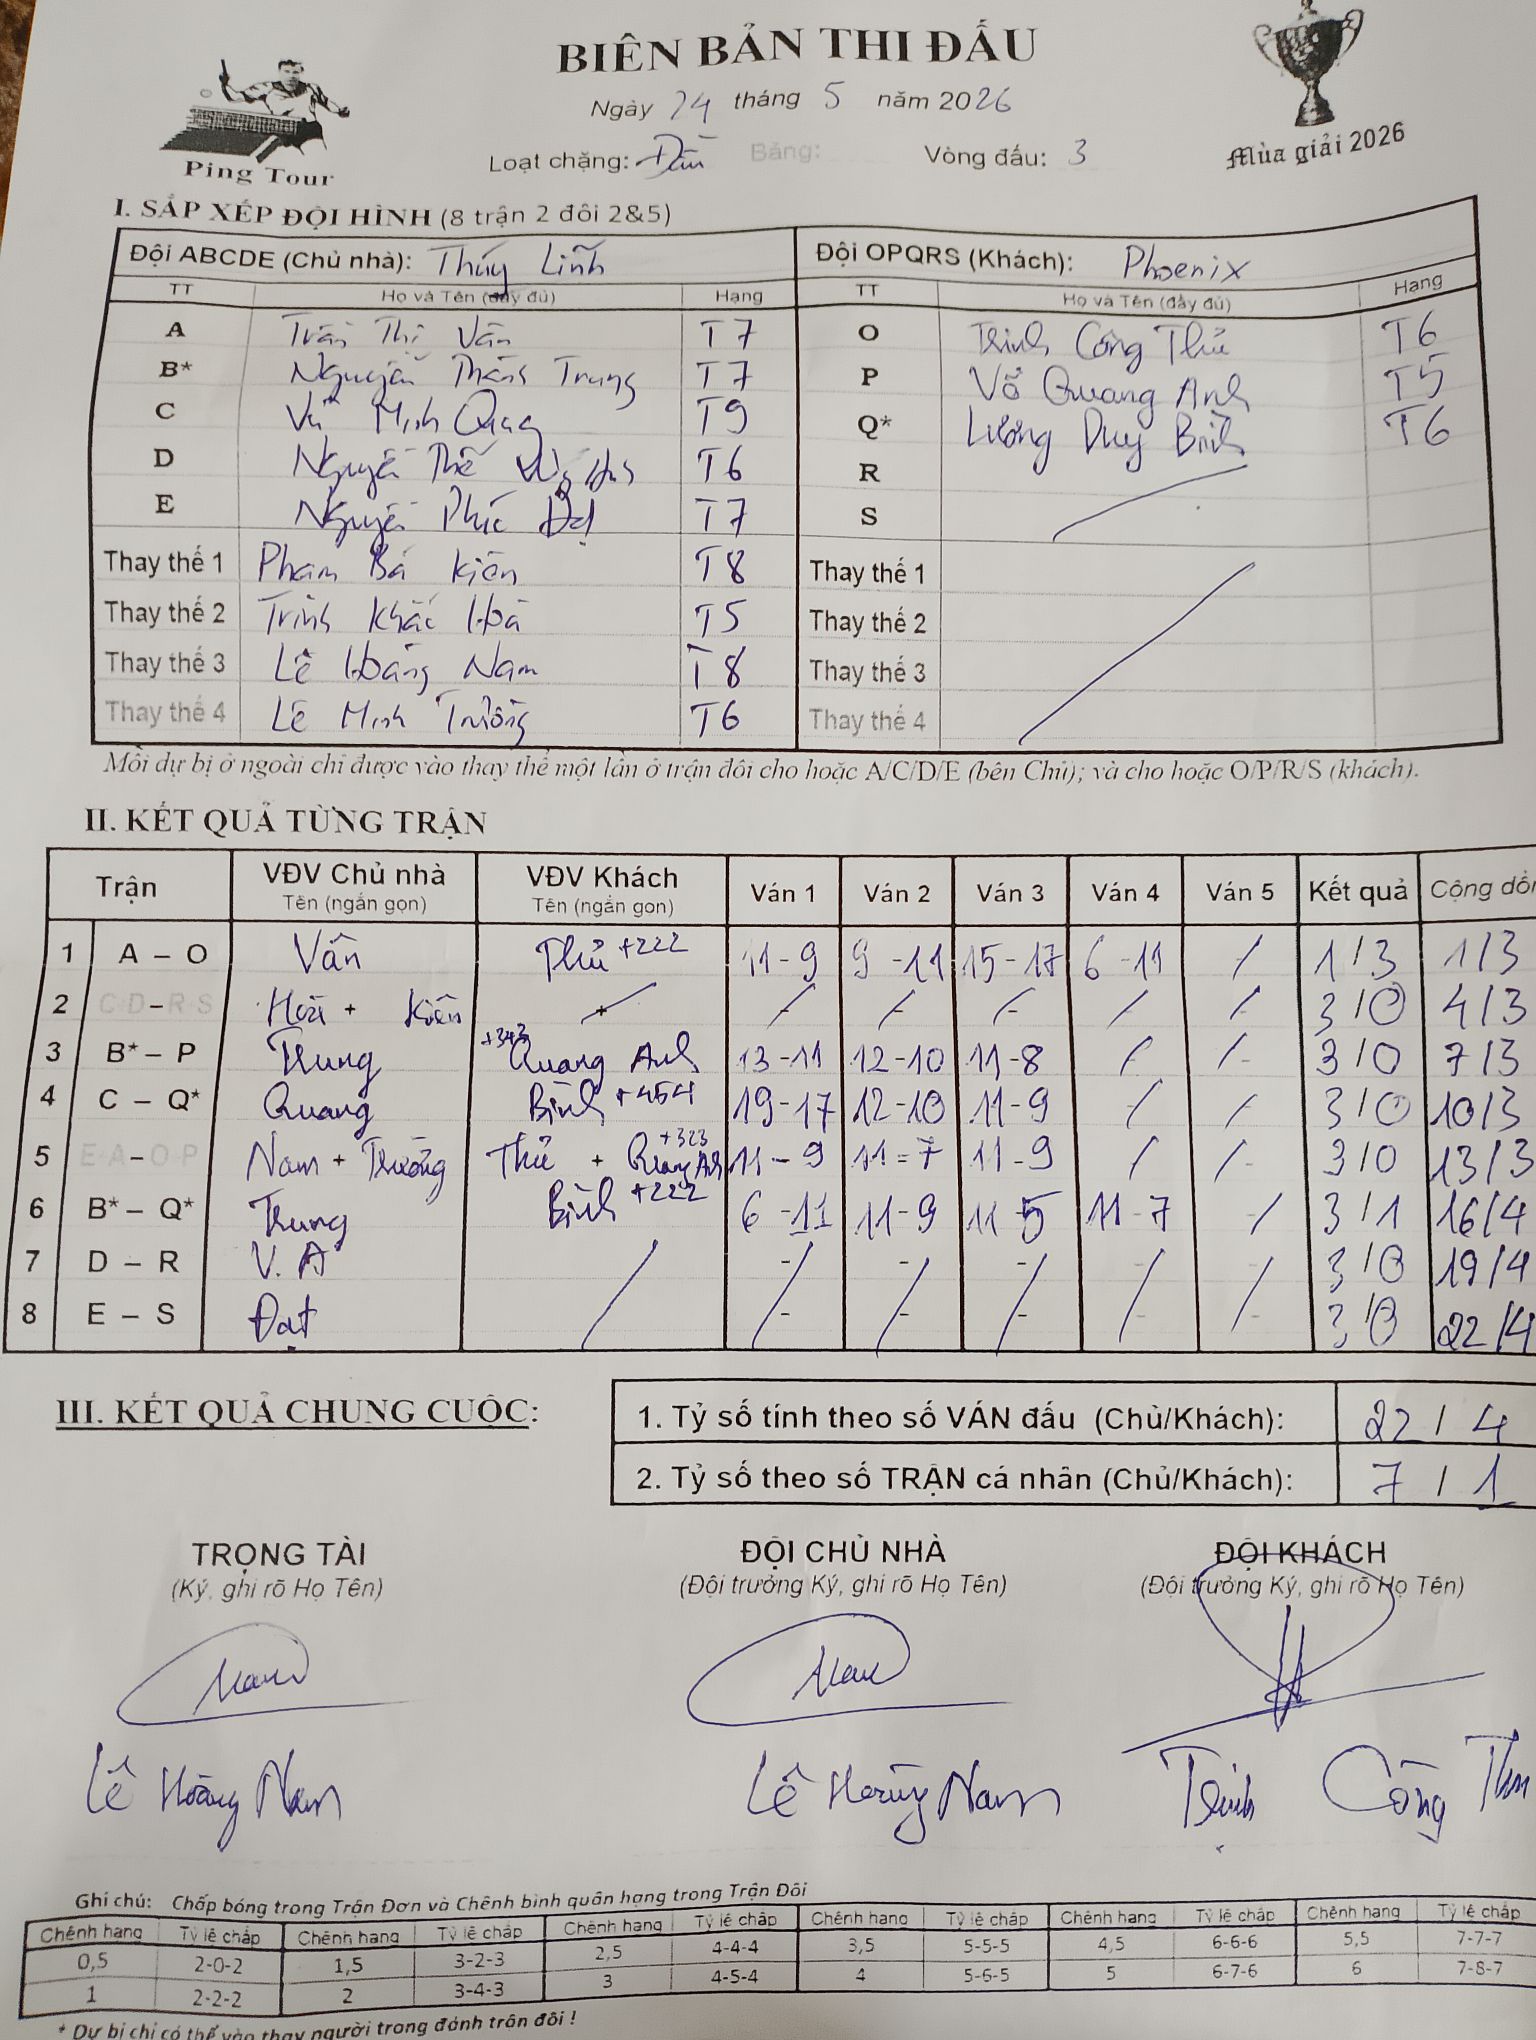 BIÊN BẢN THI ĐẤU
Ngày 24 tháng 5 năm 2026
Loạt chặng: Dần Bảng: Vòng đấu: 3
Ping Tour
Mùa giải 2026
I. SẮP XẾP ĐỘI HÌNH (8 trận 2 đôi 2&5)
Đội ABCDE (Chủ nhà): Thúy Linh Đội OPQRS (Khách): Phoenix
TT Họ và Tên (đầy đủ) Hạng TT Họ và Tên (đầy đủ) Hạng
A Trần Thị Vân T7 O Trịnh Công Thủ T6
B* Nguyễn Thành Trung T7 P Võ Quang Anh T5
C Vũ Minh Quang T9 Q* Lương Duy Bình T6
D Nguyễn Thế T6 R
E Nguyễn Phúc Đạt T7 S
Thay thế 1 Phạm Bá Kiên T8 Thay thế 1
Thay thế 2 Trịnh Khắc Hoà T5 Thay thế 2
Thay thế 3 Lê Hoàng Nam T8 Thay thế 3
Thay thế 4 Lê Minh Trường T6 Thay thế 4
Mỗi dự bị ở ngoài chỉ được vào thay thế một lần ở trận đôi cho hoặc A/C/D/E (bên Chủ); và cho hoặc O/P/R/S (khách).
II. KẾT QUẢ TỪNG TRẬN
Trận VĐV Chủ nhà VĐV Khách Ván 1 Ván 2 Ván 3 Ván 4 Ván 5 Kết quả Cộng dồn
Tên (ngắn gọn) Tên (ngắn gọn)
1 A – O Vân Thủ +222 11 - 9 9 - 11 15 - 17 6 - 11 / 1 / 3 1 / 3
2 C-D – R-S Hoà + Kiên + / / / / / 3 / 0 4 / 3
3 B* – P Trung +343 Quang Anh 13 - 11 12 - 10 11 - 8 / / 3 / 0 7 / 3
4 C – Q* Quang Bình +454 19 - 17 12 - 10 11 - 9 / / 3 / 0 10 / 3
5 E-A – O-P Nam + Trường Thủ + Quang Anh +323 11 - 9 11 - 7 11 - 9 / / 3 / 0 13 / 3
6 B* – Q* Trung Bình +222 6 - 11 11 - 9 11 - 5 11 - 7 / 3 / 1 16 / 4
7 D – R V.A / / / / / / 3 / 0 19 / 4
8 E – S Đạt / / / / / / 3 / 0 22 / 4
III. KẾT QUẢ CHUNG CUỘC:
1. Tỷ số tính theo số VÁN đấu (Chủ/Khách): 22 / 4
2. Tỷ số theo số TRẬN cá nhân (Chủ/Khách): 7 / 1
TRỌNG TÀI ĐỘI CHỦ NHÀ ĐỘI KHÁCH
(Ký, ghi rõ Họ Tên) (Đội trưởng Ký, ghi rõ Họ Tên) (Đội trưởng Ký, ghi rõ Họ Tên)
Nam Nam
Lê Hoàng Nam Lê Hoàng Nam Trịnh Công Thủ
Ghi chú: Chấp bóng trong Trận Đơn và Chênh bình quân hạng trong Trận Đôi
Chênh hạng Tỷ lệ chấp Chênh hạng Tỷ lệ chấp Chênh hạng Tỷ lệ chấp Chênh hạng Tỷ lệ chấp Chênh hạng Tỷ lệ chấp Chênh hạng Tỷ lệ chấp
0,5 2-0-2 1,5 3-2-3 2,5 4-4-4 3,5 5-5-5 4,5 6-6-6 5,5 7-7-7
1 2-2-2 2 3-4-3 3 4-5-4 4 5-6-5 5 6-7-6 6 7-8-7
* Dự bị chỉ có thể vào thay người trong đánh trận đôi !